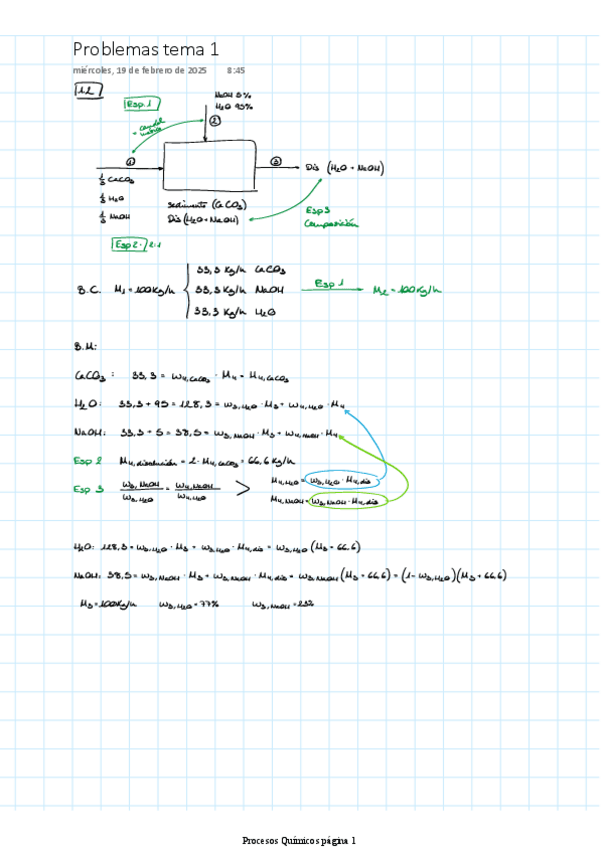 Problemas tema 1
miércoles, 19 de febrero de 2025 8:45
1.2
Esp. 1
NaOH 5%
H₂O 95%
+ caudal
②
①
③
Dis (H₂O + NaOH)
1/3 CaCO₃
1/3 H₂O
1/3 NaOH
sedimento (CaCO₃)
Dis (H₂O + NaOH)
Esp 3
Composición
Esp 2: 2:1
B.C. M₁ = 100 Kg/h
33,3 Kg/h CaCO₃
33,3 Kg/h NaOH
33,3 Kg/h H₂O
Esp 1
M₂ = 100 Kg/h
B.M:
CaCO₃: 33,3 = w₄,CaCO₃ · M₄ = M₄,CaCO₃
H₂O: 33,3 + 95 = 128,3 = w₃,H₂O · M₃ + w₄,H₂O · M₄
NaOH: 33,3 + 5 = 38,3 = w₃,NaOH · M₃ + w₄,NaOH · M₄
Esp 2 M₄,disolución = 2 · M₄,CaCO₃ = 66,6 Kg/h
Esp 3 w₃,NaOH / w₃,H₂O = w₄,NaOH / w₄,H₂O >
M₄,H₂O = w₃,H₂O · M₄,dis
M₄,NaOH = w₃,NaOH · M₄,dis
H₂O: 128,3 = w₃,H₂O · M₃ + w₃,H₂O · M₄,dis = w₃,H₂O (M₃ + 66,6)
NaOH: 38,3 = w₃,NaOH · M₃ + w₃,NaOH · M₄,dis = w₃,NaOH (M₃ + 66,6) = (1 - w₃,H₂O)(M₃ + 66,6)
M₃ = 100 Kg/h w₃,H₂O = 77% w₃,NaOH = 23%
Procesos Químicos página 1